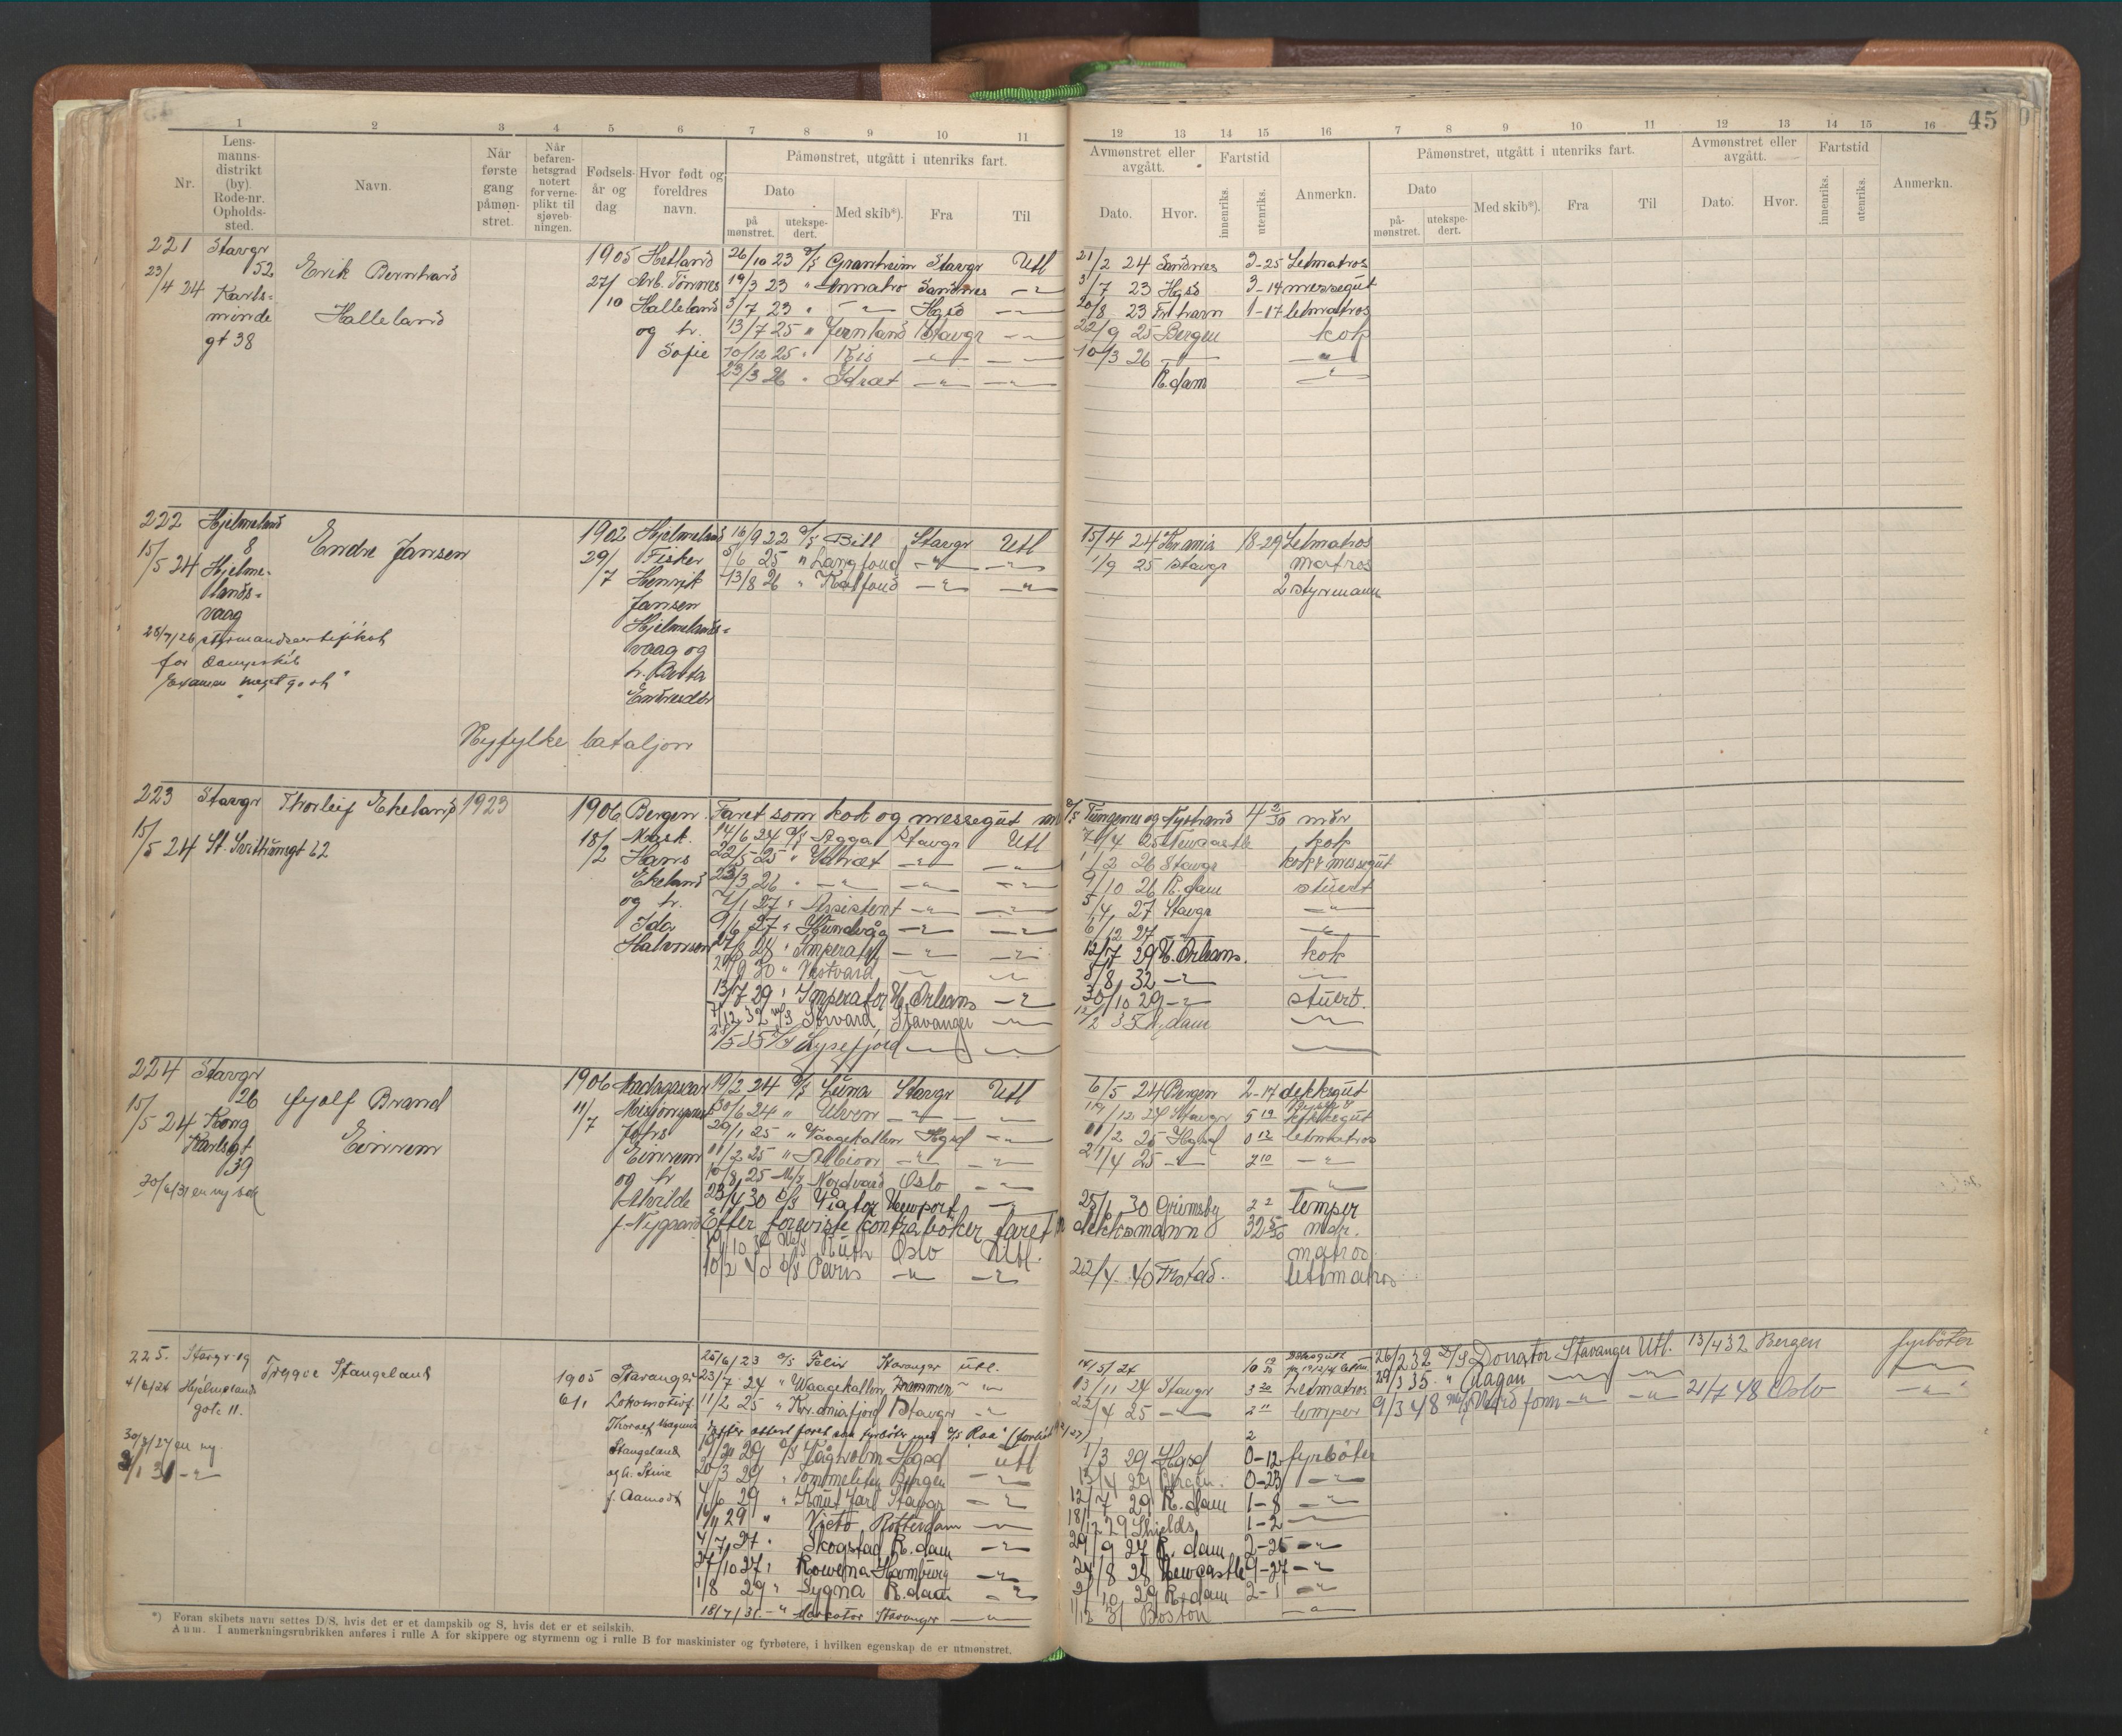 45
1 2 3 4 5 6 7 8 9 10 11 12 13 14 15 16 7 8 9 10 11 12 13 14 15 16
Nr.
Lens-
manns-
distrikt
(by).
Rode-nr.
Opholds-
sted.
Navn.
Når
første
gang
påmøn-
stret.
Når
befaren-
hetsgrad
notert
for verne-
plikt til
sjøveb-
ningen.
Fødsels-
år og
dag
Hvor født og
foreldres
navn.
Påmønstret, utgått i utenriks fart.
Dato
på
mønstret.
utekspe-
dert.
Med skib*).
Fra
Til
Avmønstret eller
avgått.
Dato.
Hvor.
Fartstid
innenriks.
utenriks.
Anmerkn.
Påmønstret, utgått i utenriks fart.
Dato
på-
mønstret.
utekspe-
dert.
Med skib*).
Fra
Til
Avmønstret eller
avgått.
Dato.
Hvor.
Fartstid
innenriks.
utenriks.
Anmerkn.
221 Stavgr
52
23/4 24 Karls-
minde
gt 38
Erik Bernhard
Halleland
1905
27/10
Hetland
Arb. Tönnes
Halleland
og h.
Sofie
26/10 23 D/S Granheim Stavgr Utl 21/2 24 Sandnes 3-25 Letmatros
19/3 23 " Annatro Sandnes — " — 3/7 23 Hgsd 3-14 messegut
3/7 23 " — " — Hgsd — " — 20/8 23 1-17 letmatros
13/7 25 " Jernland Stavgr — " — 22/9 25 Bergen kok
10/12 25 " Kis — " — — " — 10/3 26 — " — — " —
23/3 26 " Idræt — " — — " — R.dam — " —
222 Hjelmeland
8
15/5 24 Hjelme-
lands-
vaag
Endre Jansen
1902
29/7
Hjelmeland
Fisker
Henrik
Jansen
Hjelmelands-
vaag og
h.
Endresdtr
16/9 22 D/S Bill Stavgr Utl 15/4 24 Kr.ania 18-29 Letmatros
5/6 25 " Langfond — " — — " — 1/9 25 Stavgr matros
13/8 26 " Kalfond — " — — " — 2 styrmann
28/7/26 styrmandscertifikat
for dampskib
Examen meget godt
Ryfylke bataljon
223 Stavgr Thorleif Ekeland 1923
15/5 24 St. Svithunsgt 62
1906
18/2
Bergen
Mask.
Hans
Ekeland
og h.
Ida
Halvorsen
Faret som kok og messegut m D/S Tungenes og Nystrand 4 2/30 mdr
14/6 24 D/S Agga Stavgr Utl 7/4 25 Newcastle kok
22/5 25 " Idræt — " — — " — 1/2 26 Stavgr kok & messegut
23/3 26 " — " — — " — — " — 9/10 26 R.dam stuert
7/1 27 " Assistent — " — — " — 5/4 27 Stavgr — " —
9/6 27 " Hundvåg — " — — " — 6/12 27 — " — — " —
27/8 28 " Imperator — " — — " — 12/7 29 N. Orleans. kok
30 " Vestvard — " — — " — 8/8 32 — " — — " —
13/7 29 " Imperator N. Orleans — " — 30/10 29 — " — stuert.
7/12 32 M/S Sörvard Stavanger — " — 12/2 35 R.dam — " —
28/5 35 D/S Lysefjord — " — — " — — " —
224 Stavgr
26
15/5 24 Kong
Karlsgt
39
20/6/31 en ny bok
Eyolf Brand
Einrem
1906
11/7
Madagascar
Misjonsprest
Johs
Einrem
og h
Alvilde
f. Nygaard
19/2 24 D/S Luna Stavgr Utl 6/5 24 Bergen 2-17 dekksgut
30/6 24 " Ulven — " — — " — 19/12 24 Stavgr 5 19 dekksgut
29/1 25 " Vaagekallen Hgsd — " — 11/2 25 Hgsd 0 12 letmatros
11/2 25 " Albion — " — — " — 21/4 25 — " — 2 10 — " —
10/8 25 M/S Nordvard Oslo — " — — " —
23/4 30 D/S Viator Newport — " — 25/6 30 Grimsby 2 2 lemper
Efter foreviste kontrabøker faret m dekksmann 32 5/30 mdr.
M/S Ruth Oslo Utl. matros.
10/2 40 D/S Paris — " — — " — 22/4 40 Frstad. letmatros
225. Stavgr. 19
4/6/24 Hjelmeland
gate 11.
30/3/27 en ny
2/1 31 — " —
Trygve Stangeland
1905
6/1
Stavanger
Lokomotivf.
Thoralf Magnus
Stangeland
og h. Stine
f. Aamodt
25/6/23 D/S Felix Stavanger utl. 14/5/24
23/7 24 " Waagekallen Drammen — " — 13/11 24 Stavgr 3 20 Letmatros
11/2 25 " Kr.aniafjord Stavgr — " — 22/4 25 — " — 2 11 lemper
Efter attest faret som fyrböter med D/S Raa
19/ 29 D/S Vågholm Hgsd utl 1/3 29 Hgsd 0-12 fyrböter
20/3 29 " Tommeliten Bergen — " — 13/4 29 Bergen. 0-23 — " —
4/6 29 " Knut Jarl Stavgr — " — 12/7 29 R.dam 1-8 — " —
16/11 29 " Victo Rotterdam — " — 18/12 29 Shields 1-2 — " —
4/7 27 " Skogstad R.dam — " — 29/9 27 R.dam 2-25 — " —
27/10 27 " Rowena Hamburg — " — 24/8 28 Newcastle 9-27 — " —
1/8 29 " Sygna R.dam — " — 2/10 29 R.dam 2-1 — " —
18/7/31 — " Mercator Stavanger — " — 1/12 31 Boston — " —
26/2 32 D/S Donator Stavanger Utl. 13/4 32 Bergen fyrböter
29/3 35 " — " — — " — — " —
9/3 48 M/S Nordfonn — " — — " — 21/7 48 Oslo — " —
*) Foran skibets navn settes D/S, hvis det er et dampskib og S, hvis det er et seilskib.
Anm. I anmerkningsrubrikken anføres i rulle A for skippere og styrmenn og i rulle B for maskinister og fyrbøtere, i hvilken egenskap de er utmønstret.